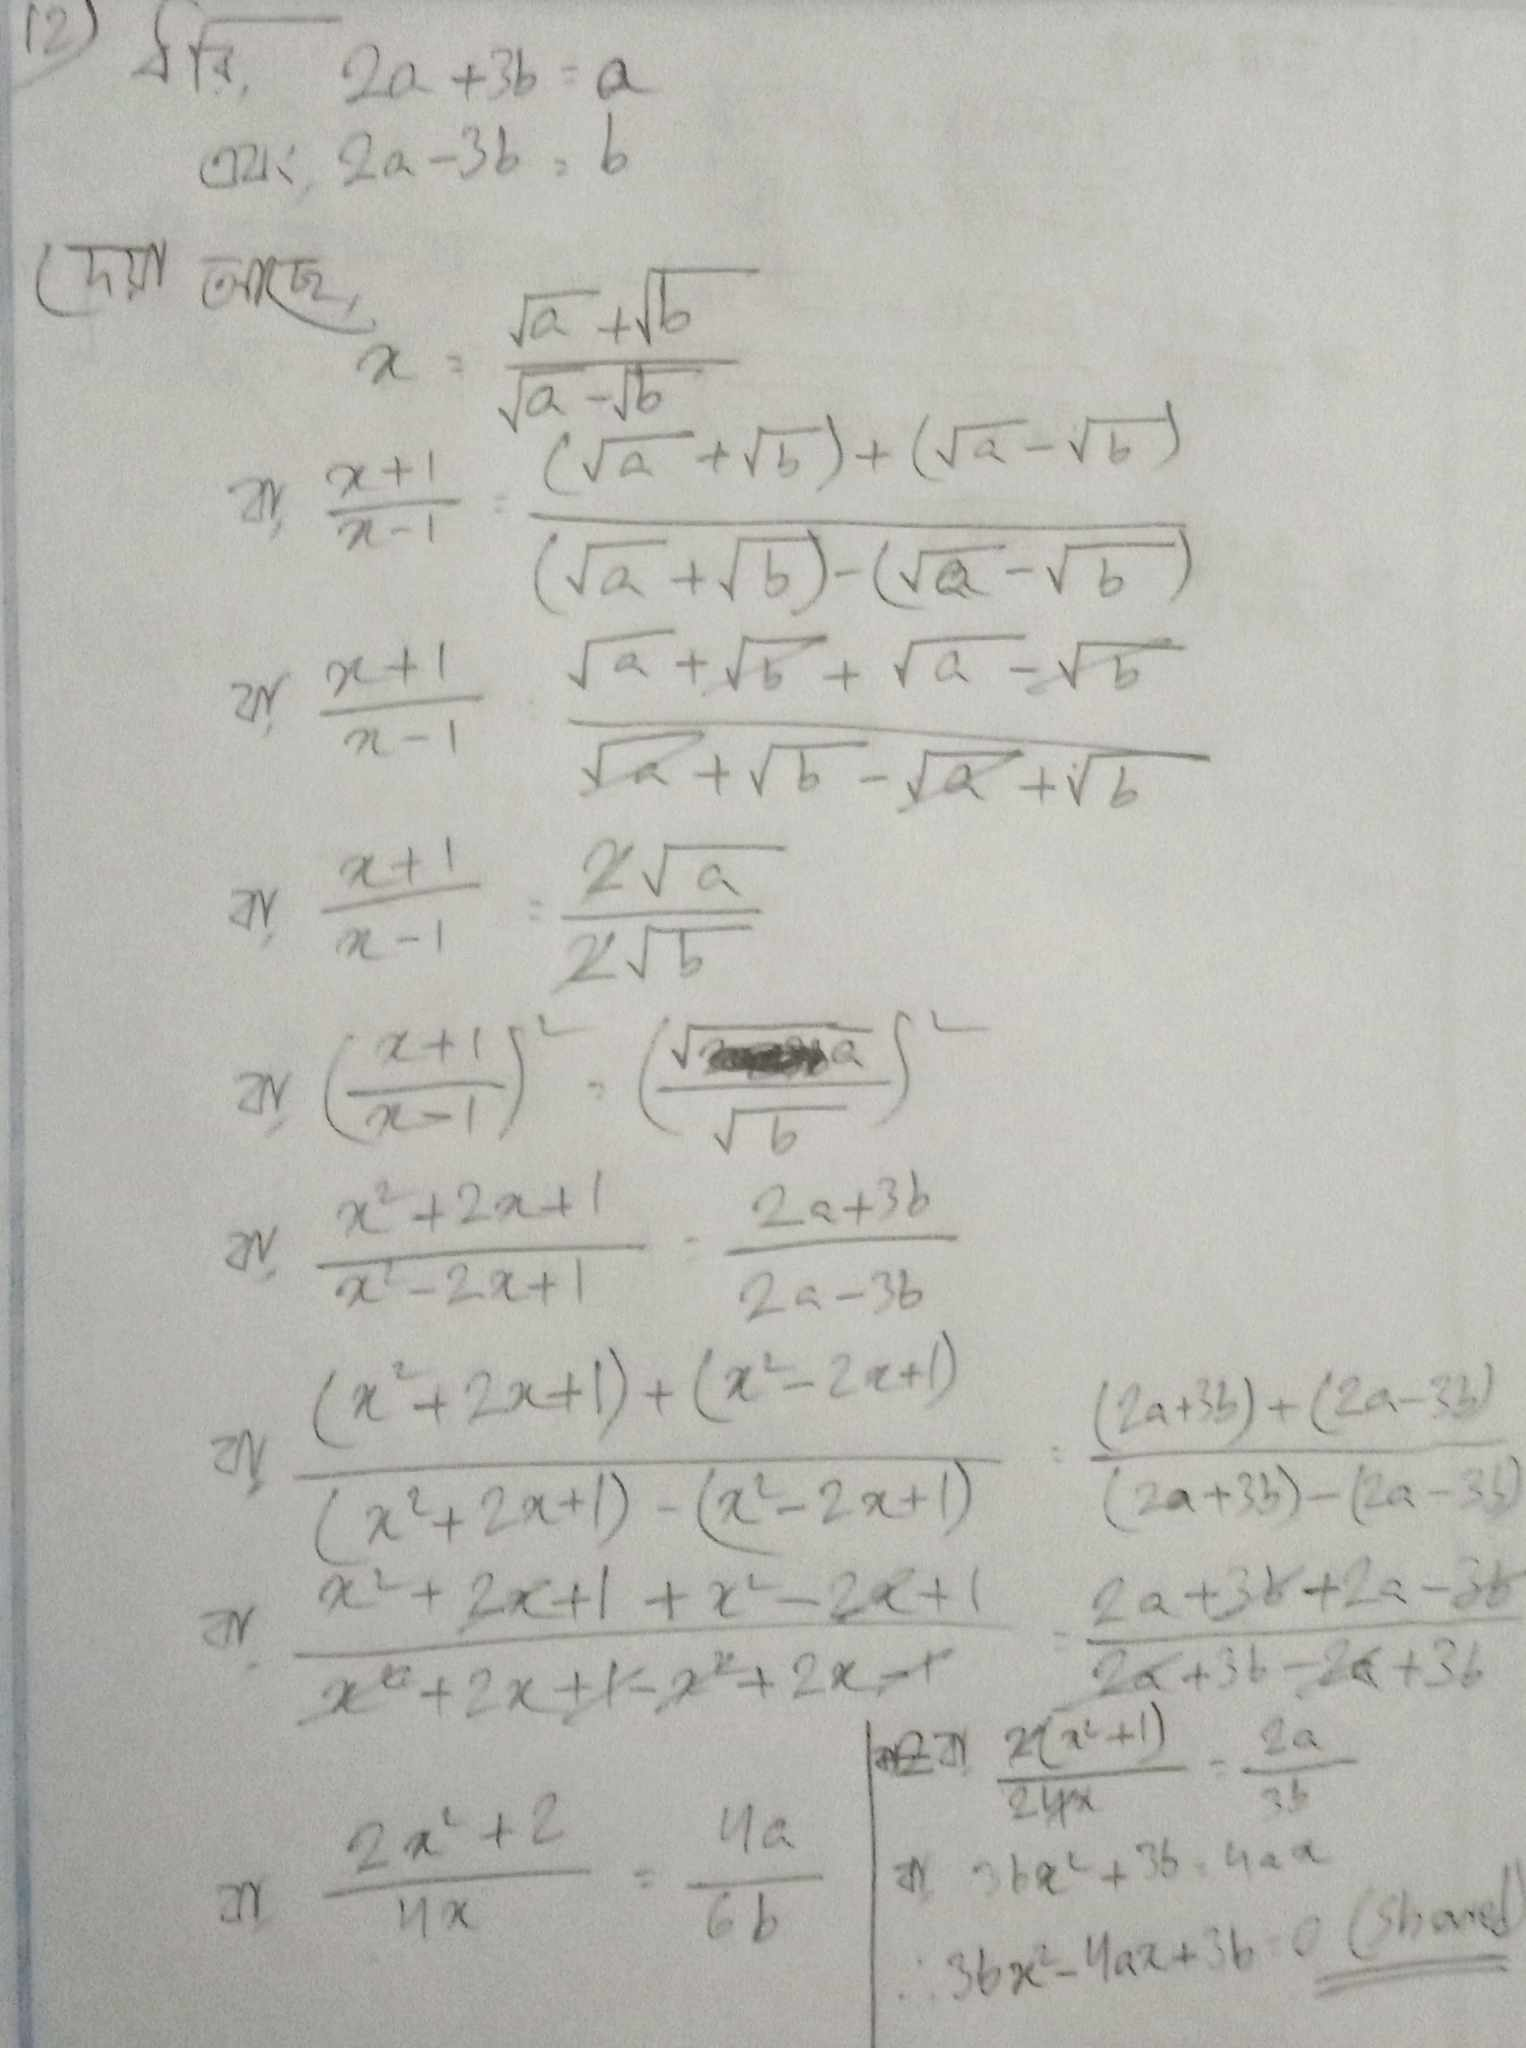 12) ধরি, 2a + 3b = a
এবং, 2a - 3b = b
দেয়া আছে,
x = (√a + √b)/(√a - √b)
বা, (x+1)/(x-1) = ((√a + √b) + (√a - √b))/((√a + √b) - (√a - √b))
বা, (x+1)/(x-1) = (√a + √b + √a - √b)/(√a + √b - √a + √b)
বা, (x+1)/(x-1) = 2√a/2√b
বা, ((x+1)/(x-1))² = (√a/√b)²
বা, (x²+2x+1)/(x²-2x+1) = (2a+3b)/(2a-3b)
বা, ((x²+2x+1)+(x²-2x+1))/((x²+2x+1)-(x²-2x+1)) = ((2a+3b)+(2a-3b))/((2a+3b)-(2a-3b))
বা, (x²+2x+1+x²-2x+1)/(x²+2x+1-x²+2x-1) = (2a+3b+2a-3b)/(2a+3b-2a+3b)
বা, (2x²+2)/4x = 4a/6b
বা, 2(x²+1)/24x = 2a/3b
বা, 3bx²+3b = 4ax
∴ 3bx²-4ax+3b = 0 (Shaned)